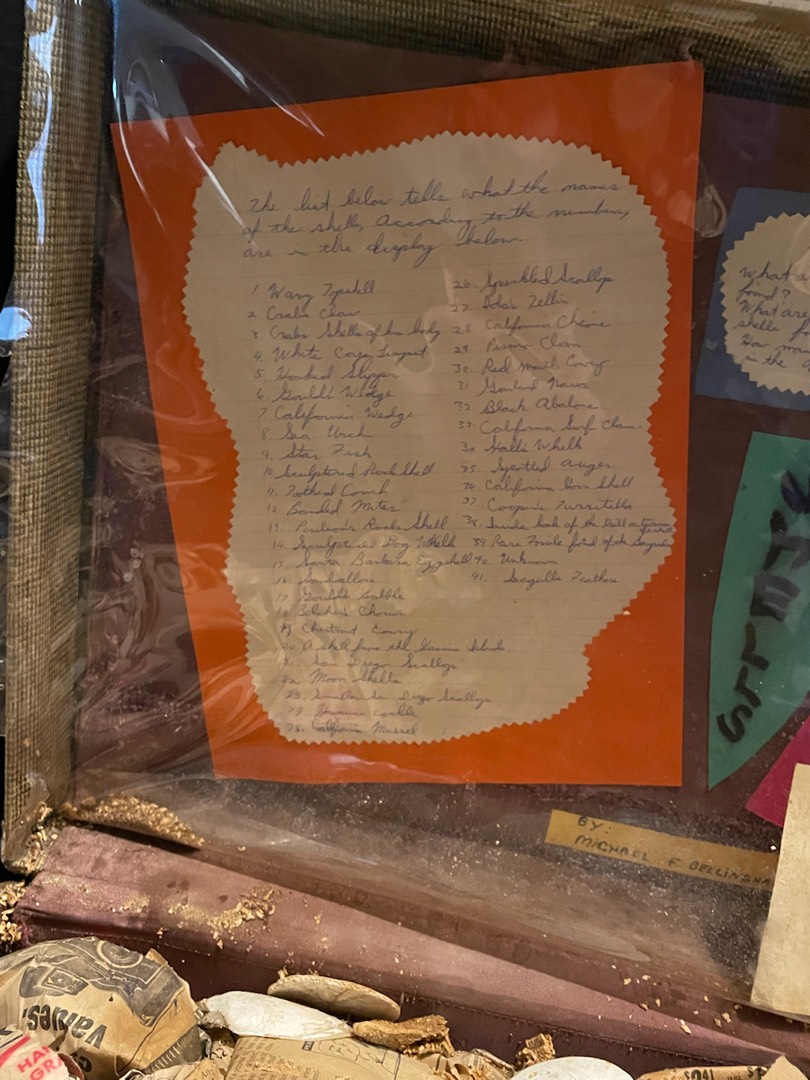 The list below tells what the names
of the shells, According to the numbers,
are in the display below.
1. Wavy Topshell
2. Crabs Claw
3. Crabs Shells of his body
4. White Cap Limpet
5. Hooked Slipper
6. Gould's Wedge
7. California Wedge
8. Sea Urchin
9. Star Fish
10. Sculptured Rock Shell
11. Conch
12. Banded Miter
13. Poulson's Rock Shell
14. Sculptured Dog Whelk
15. Santa Barbara Eggshell
16.
17. Gould's Bubble
18. Belcher's Chorus
19. Chestnut Cowry
20. A shell from the Islands.
21. San Diego Scallop
22. Moon Shells
23. Smaller San Diego Scallops
24. cockle
25. California Mussel
26. Speckled Scallop
27. Ida's Tellin
28. California Chione
29. Pismo Clam
30. Red Mouth Cowry
31.
32. Black Abalone
33. California Surf Clam.
34. Whelk
35. Spotted Auger
36. California Horn Shell
37. Cooper's Turritella
38. Inside look of the
39. Rare find of the
40. Unknown
41. Seagulls Feathers
What a
find?
What are
shells fo
How man
in the
SHELLS
BY:
MICHAEL F BELLINGHA